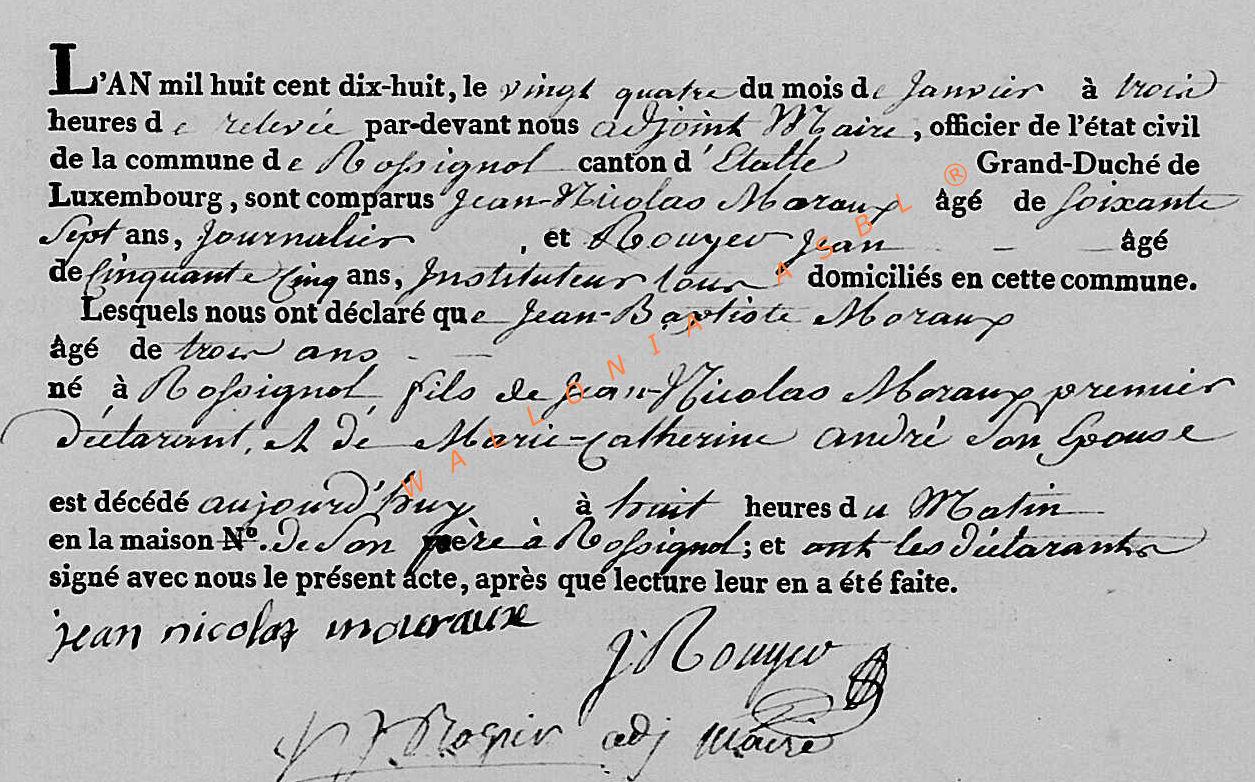 L'AN mil huit cent dix-huit, le vingt quatre du mois de Janvier à trois
heures de relevée par-devant nous adjoint Maire, officier de l'état civil
de la commune de Rossignol canton d'Etalle Grand-Duché de
Luxembourg, sont comparus Jean-Nicolas Moraux âgé de soixante
Sept ans, Journalier, et Rouyer Jean - - âgé
de Cinquante Cinq ans, Instituteur tous domiciliés en cette commune.
Lesquels nous ont déclaré que Jean-Baptiste Moraux
âgé de trois ans - -
né à Rossignol, fils de Jean-Nicolas Moraux premier
déclarant, et de Marie-Catherine andré Son Epouse
est décédé aujourd'huy à huit heures du Matin
en la maison N°. de Son père à Rossignol; et ont les déclarants
signé avec nous le présent acte, après que lecture leur en a été faite.
jean nicolas mouraux
J Rouyer
adj maire
WALLONIA ASBL ®